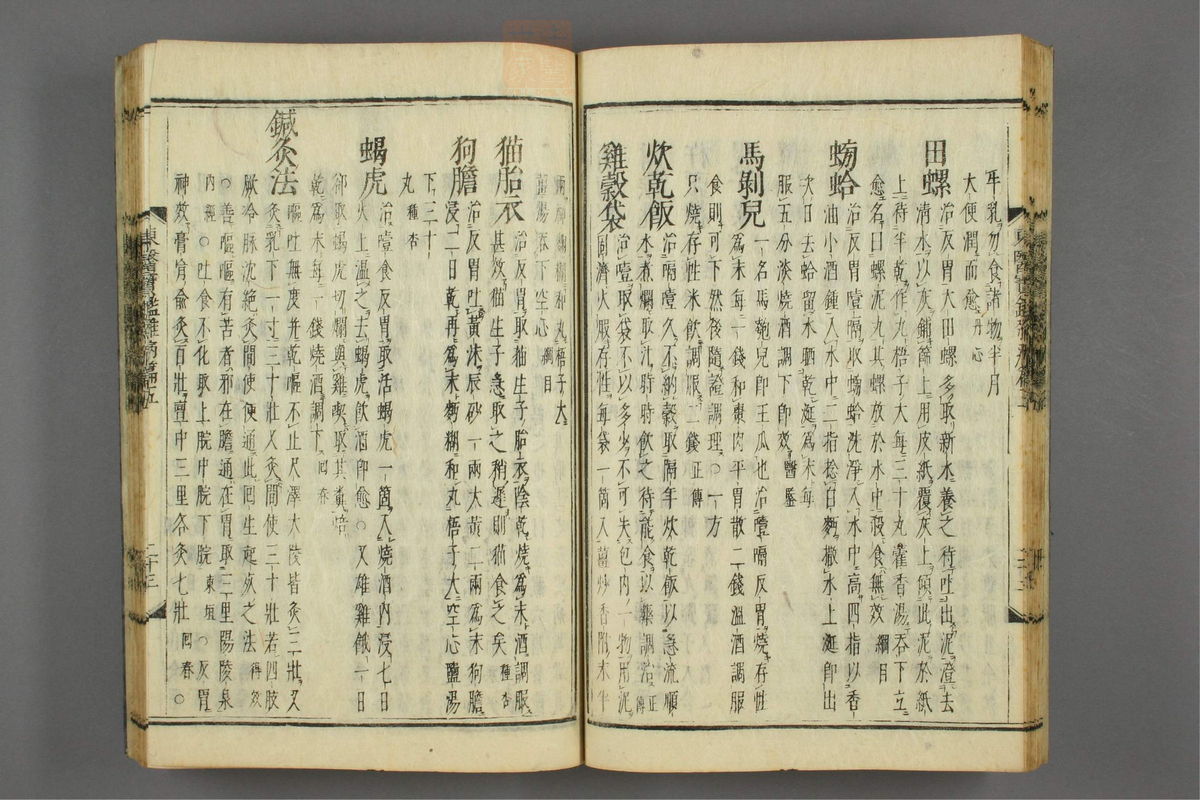 牛乳勿食諸物半月
大便潤而愈丹心
田螺治反胃大田螺多取新水養之待吐出泥澄去
清水以灰鋪篩上用皮紙覆灰上傾此泥於紙
上待半乾作丸梧子大每三十丸藿香湯呑下立
愈名曰螺泥丸其螺放於水中殺食無效綱目
蝤蛤治反胃噎膈取蝤蛤洗淨入水中高四指以香
油小酒鍾入水中二指捻白麪撒水上涎卽出
次日去蛤留水晒乾涎爲末每
服五分淡燒酒調下卽效醫鑒
馬剝兒一名馬㼎兒卽王瓜也治噎膈反胃燒存性
爲末每一錢和棗肉平胃散二錢溫酒調服
食則可下然後隨證調理○一方
只燒存性米飮調服二錢正傳
炊乾飯治膈噎久不納穀取隔年炊乾飯以急流順
水煮爛取汁時時飮之待能食以藥調治正傳
雞穀袋治噎取袋不以多少不可失包內一物用泥
固濟火煅存性每袋一箇入薑炒香附末半
兩神麴糊和丸梧子大
薑湯呑下空心綱目
猫胎衣治反胃取猫生子胎衣陰乾燒爲末酒調服
甚效猫生子急取之稍遲則猫食之矣種杏
狗膽治反胃吐黃沫辰砂一兩大黃二兩爲末狗膽
浸一日乾再爲末麪糊和丸梧子大空心鹽湯
下二十
丸種杏
蝎虎治噎食反胃取活蝎虎一箇入燒酒內浸七日
火上溫之去蝎虎飮酒卽愈○又雄雞餓一日
卻取蝎虎切爛與雞喫取其糞焙
乾爲末每一錢燒酒調下回春
鍼灸法嘔吐無度幷乾嘔不止尺澤大陵皆灸三壯又
灸乳下一寸三十壯又灸間使三十壯若四肢
厥冷脉沈絶灸間使便通此回生起死之法得效
○善嘔嘔有苦者邪在膽逋在胃取三里陽陵泉
內經○吐食不化取上脘中脘下脘東垣○反胃
神效膏肓俞灸百壯膻中三里各灸七壯回春○
東醫寶鑑雜病篇卷五
二十三